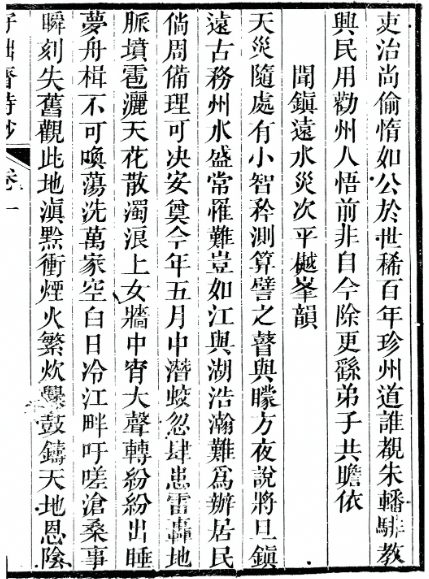 吏治尚偷惰如公於世稀百年珍州道誰覩朱轓騑教
興民用勸州人悟前非自今除更繇弟子共瞻依
聞鎮遠水災次平樾峯韻
天災隨處有小智矜測算譬之瞽與矇方夜說將旦鎮
遠古務州水盛常罹難豈如江與湖浩瀚難爲辦居民
倘周備理可决安奠今年五月中潛蛟忽肆患雷轟地
脈墳雹灑天花散濁浪上女牆中宵大聲轉紛紛出睡
夢舟楫不可喚蕩洗萬家空白日冷江畔吁嗟滄桑事
瞬刻失舊觀此地滇黔衝煙火繁炊爨鼓鑄天地恩陰
拙齋詩鈔 卷一